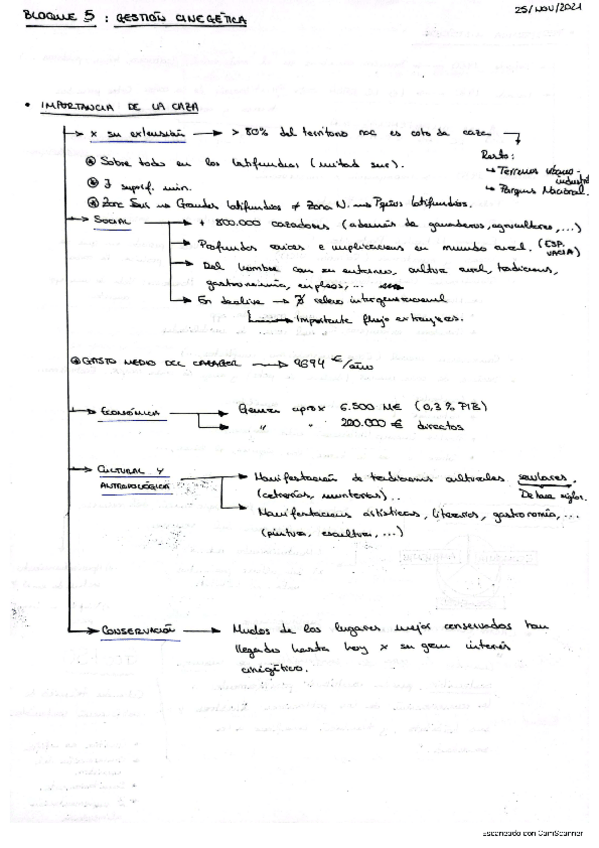 25/NOV/2021
BLOQUE 5 : GESTIÓN CINEGÉTICA
• IMPORTANCIA DE LA CAZA
x su extensión → > 80% del territorio nac es coto de caza
Resto:
→ Terrenos urbano-industri
→ Parques Nacional.
Sobre todo en los latifundios (mitad sur).
∃ superf. min.
Zona Sur → Grandes latifundios ≠ Zona N. → Pqños latifundios.
SOCIAL → + 800.000 cazadores (además de ganaderos, agricultores, ...)
→ Profundas raíces e implicaciones en mundo rural. (ESP. VACIA)
→ Del hombre con su entorno, cultura rural, tradiciones,
gastronomía, empleos, ...
→ En declive → ∄ relevo intergeneracional
→ Importante flujo extranjeros.
GASTO MEDIO DEL CAZADOR → 9694 €/año
ECONÓMICA → Genera aprox 6.500 M€ (0,3% PIB)
→ " " 200.000 € directos
CULTURAL Y
ANTROPOLÓGICA
→ Manifestación de tradiciones culturales seculares.
(cetrerías, monterías)..
De hace siglos.
→ Manifestaciones artísticas, literarias, gastronomía, ...
(pintura, escultura, ...)
CONSERVACIÓN → Muchos de los lugares mejor conservados han
llegado hasta hoy x su gran interés
cinegético.
Escaneado con CamScanner